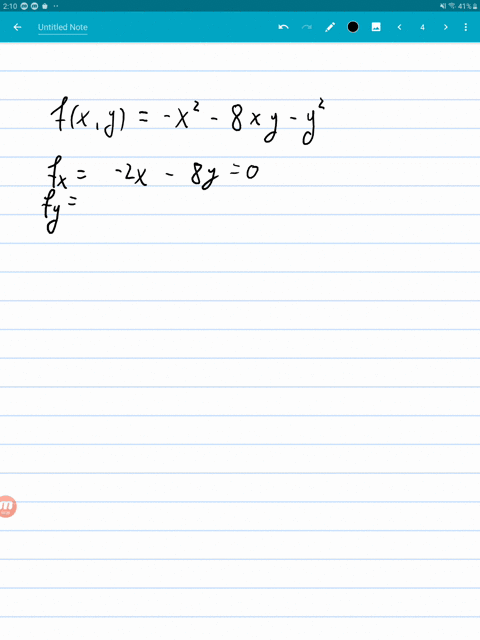 2:10 41%
Untitled Note 4
f(x,y) = -x² - 8xy - y²
fx = -2x - 8y = 0
fy =